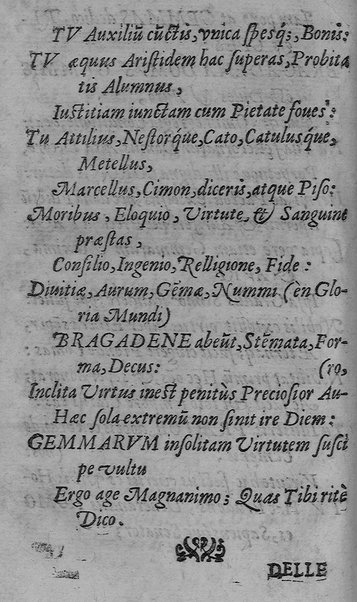 TV Auxiliũ cũctis, vnica spesq́;, Bonis:
TV æquus Aristidem hac superas, Probita
tis Alumnus,
Iustitiam iunctam cum Pietate foues:
Tu Attilius, Nestorq́ue, Cato, Catulusq́ue,
Metellus,
Marcellus, Cimon, diceris, atque Piso:
Moribus, Eloquio, Virtute, & Sanguine
præstas,
Consilio, Ingenio, Relligione, Fide:
Diuitiæ, Aurum, Gẽmæ, Nummi (èn Glo-
ria Mundi)
BRAGADENE abeũt, Stẽmata, For-
ma, Decus: (ro,
Inclita Virtus inest penitùs Preciosior Au-
Hæc sola extremũ non sinit ire Diem:
GEMMARVM insolitam Virtutem susci
pe vultu
Ergo age Magnanimo; Quas Tibi ritè
Dico.
DELLE